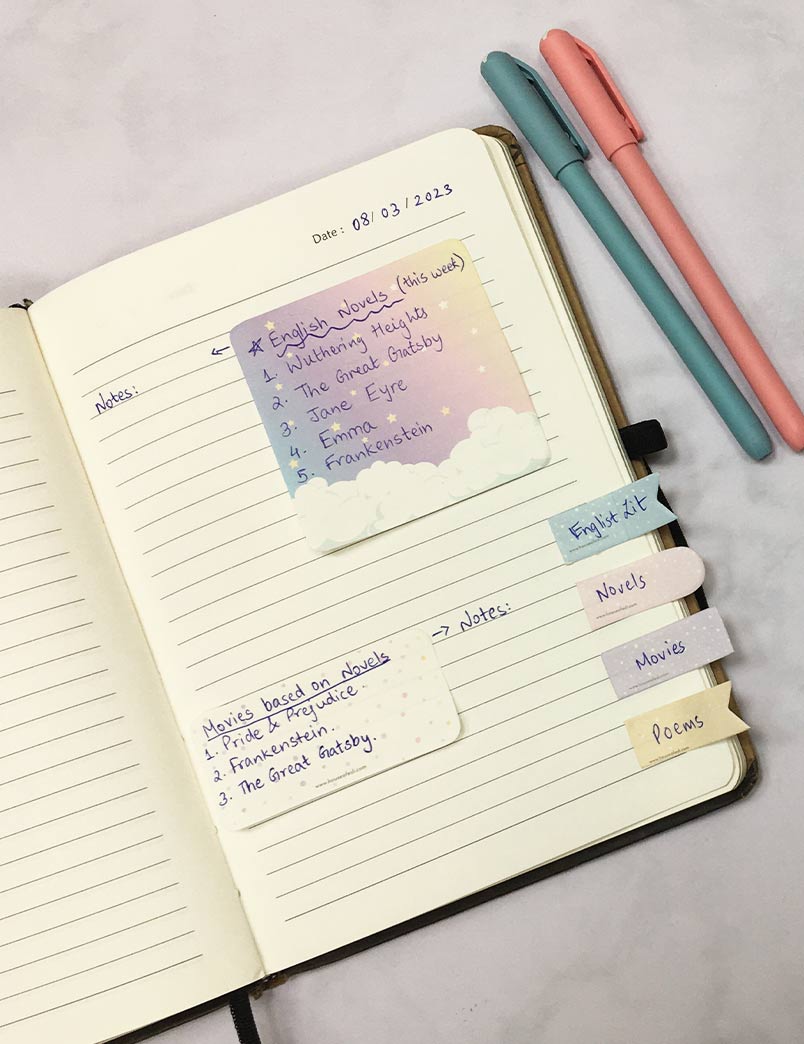 Date : 08/ 03 / 2023
☆ English Novels (this week)
1. Wuthering Heights
2. The Great Gatsby
3. Jane Eyre
4. Emma
5. Frankenstein
← Notes:
Englist Lit
Novels
Movies
Poems
→ Notes:
Movies based on Novels
1. Pride & Prejudice.
2. Frankenstein.
3. The Great Gatsby.